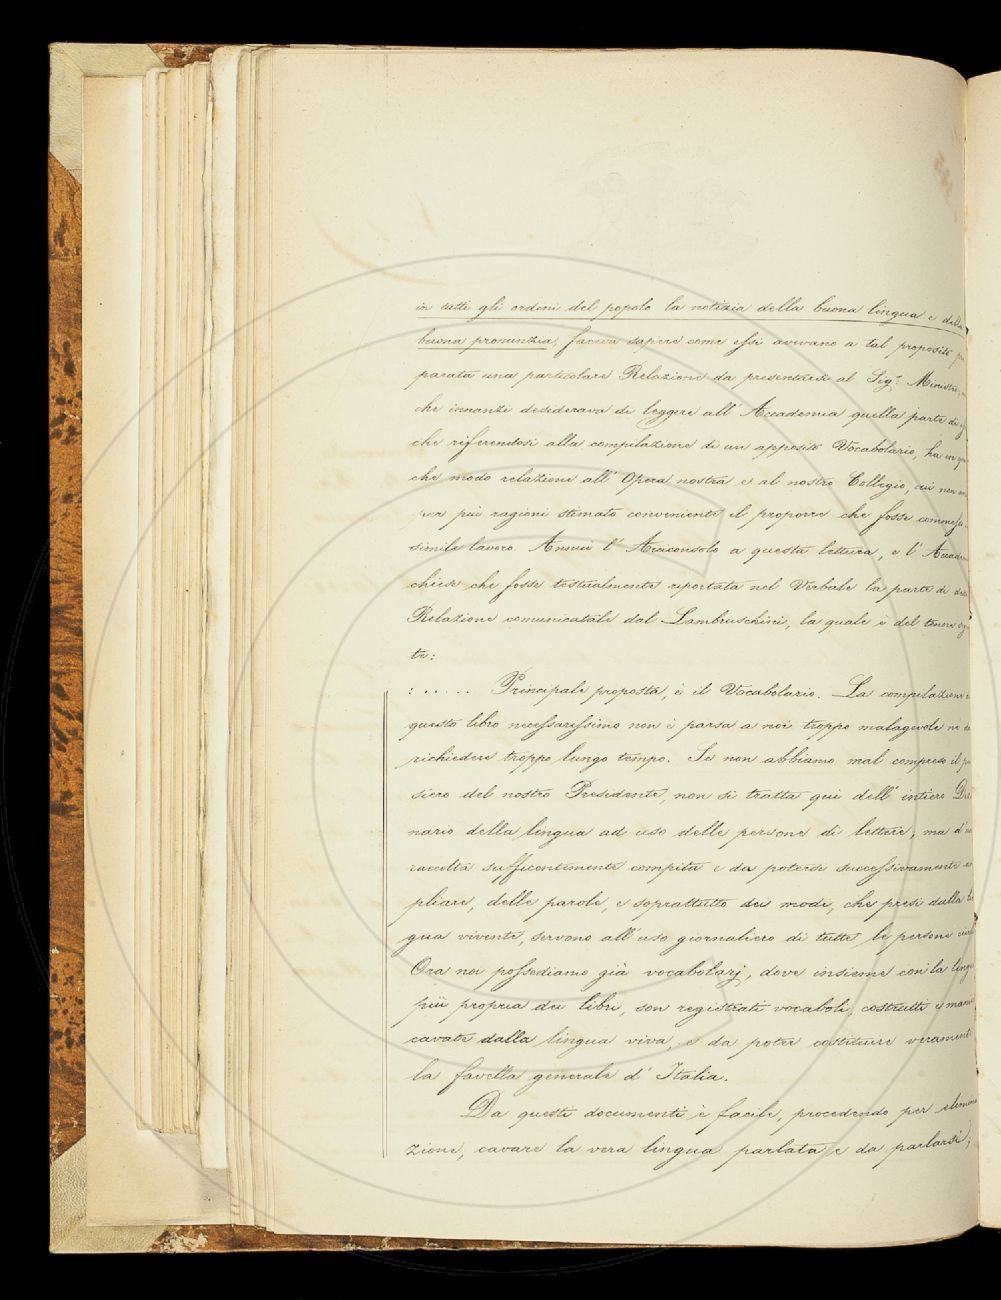 in tutti gli ordini del popolo la notizia della buona lingua e della
buona pronunzia, faceva sapere come essi avevano a tal proposito
parata una particolare Relazione da presentarsi al Sigr. Ministro,
che innanzi desiderava di leggere all' Accademia quella parte di
che riferendosi alla compilazione di un apposito Vocabolario, ha in
che modo relazione all' Opera nostra e al nostro Collegio, cui non
per più ragioni stimato conveniente il proporre che fosse commesso
simile lavoro. Annuì l' Arciconsolo a questa lettura, e l' Accade
chiese che fosse testualmente riportata nel Verbale la parte di detta
Relazione comunicatale dal Lambruschini, la quale è del tenore
te:
: ..... Principale proposta, è il Vocabolario. La compilazione
questo libro necessarissimo non è parsa a noi troppo malagevole nè da
richiedere troppo lungo tempo. Se non abbiamo mal compreso il
siero del nostro Presidente, non si tratta qui dell' intiero Dizi
nario della lingua ad uso delle persone di lettere; ma d'
raccolta sufficentemente compita e da potersi successivamente
pliare, delle parole, e soprattutto dei modi, che presi dalla
gua vivente, servono all' uso giornaliero di tutte le persone
Ora noi possediamo già vocabolarj, dove insieme con la lingu
più propria dei libri, son registrati vocaboli, costrutti e mani
cavate dalla lingua viva, e da poter costituire veramente
la favella generale d' Italia.
Da questi documenti è facile, procedendo per elimina
zione, cavare la vera lingua parlata e da parlarsi;